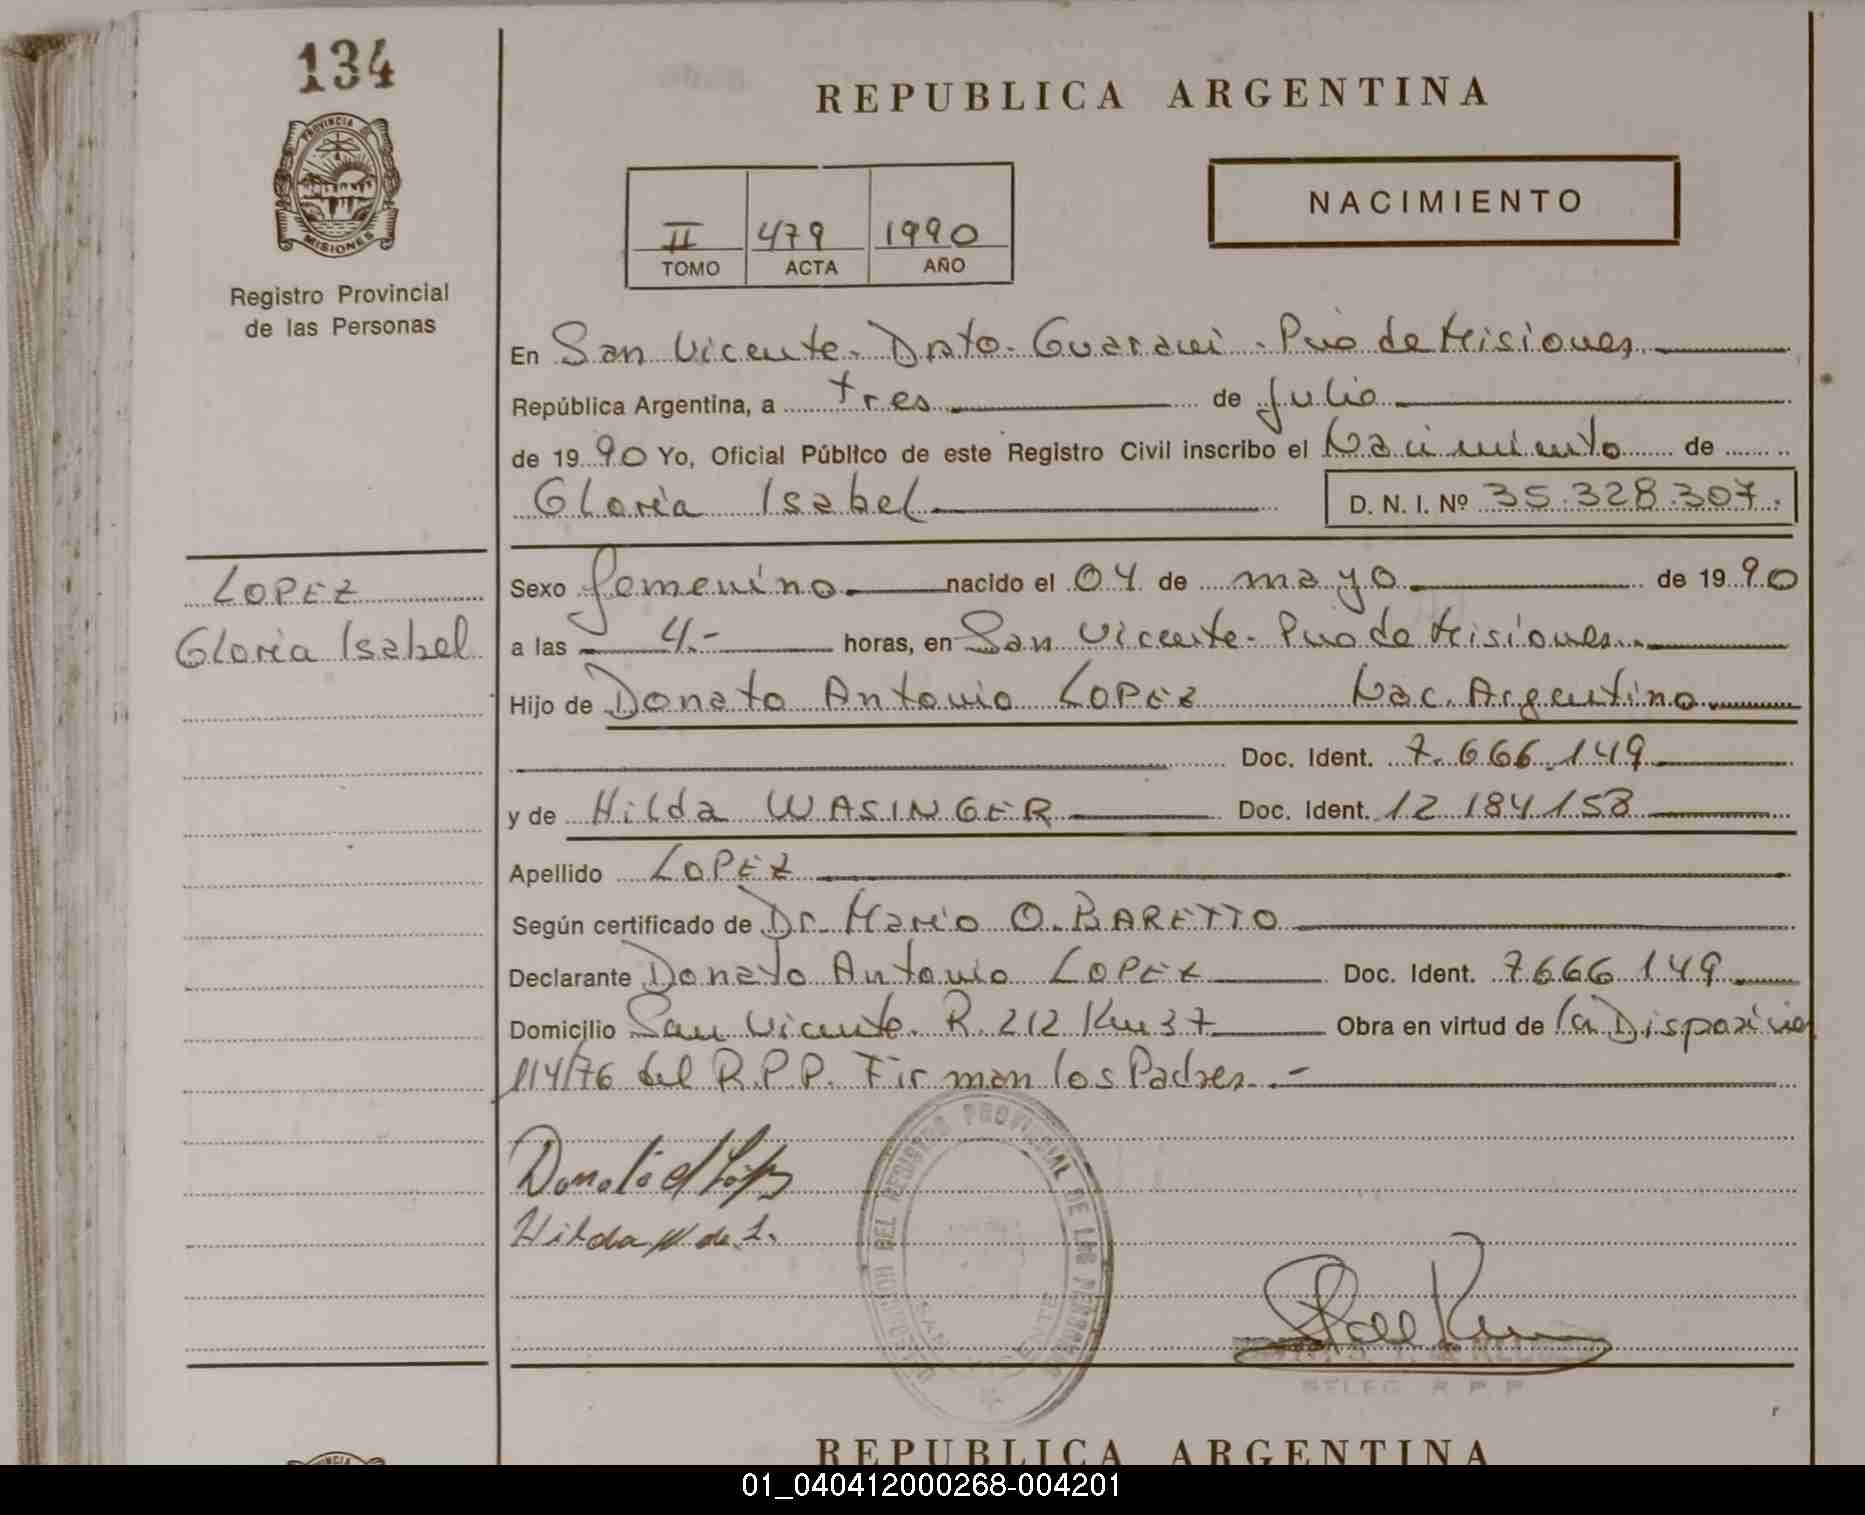 134
PROVINCIA
MISIONES
Registro Provincial
de las Personas
LOPEZ
Gloria Isabel
REPUBLICA ARGENTINA
II 479 1990
TOMO ACTA AÑO
NACIMIENTO
En San Vicente. Dpto. Guarani. Pvia de Misiones
República Argentina, a tres de Julio
de 1990 Yo, Oficial Público de este Registro Civil inscribo el Nacimiento de
Gloria Isabel D. N. I. Nº 35.328.307.
Sexo femenino nacido el 04 de mayo de 1990
a las 4.- horas, en San Vicente - Pvia de Misiones
Hijo de Donato Antonio LOPEZ Nac. Argentino
Doc. Ident. 7.666.149
y de Hilda WASINGER Doc. Ident. 12 184 158
Apellido LOPEZ
Según certificado de Dr. Mario O. BARETTO
Declarante Donato Antonio LOPEZ Doc. Ident. 7.666 149
Domicilio San Vicente. R. 212 Km 37 Obra en virtud de la Disposicio
114/76 del R.P.P. Firman los Padres.-
Donato A López
Hilda W de L.
DEL REGISTRO PROVINCIAL DE LAS PERSONAS
SAN VICENTE
DELEG. R P P
REPUBLICA ARGENTINA
01_040412000268-004201